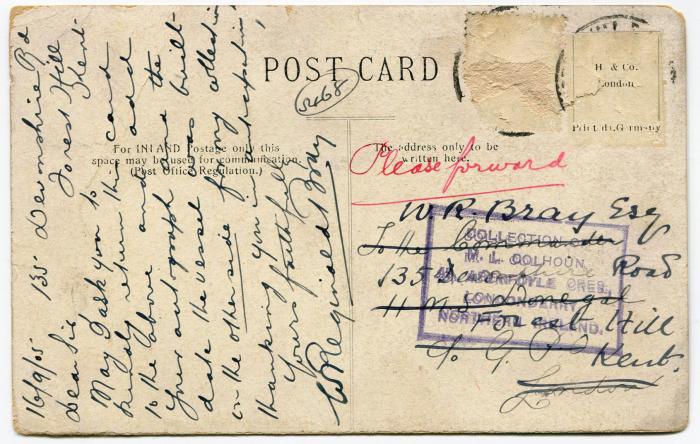 16/9/05. 135 Devonshire Rd
Forest Hill
Kent.
Dear Sir,
May I ask you to
kindly return this card
to the above and add
your autograph and the
date the vessel was built
on the other side for my collection,
thanking you in anticipation,
Yours faithfully
W Reginald Bray
POST CARD
For INLAND Postage only this
space may be used for communication.
(Post Office Regulation.)
The address only to be
written here.
H & Co.
London
Please forward
W. R. Bray Esq
To the Commander
135 Devonshire Road
H.M.S. Donegal
Forest Hill
c/o G.P.O.
Kent.
London
COLLECTION OF
M. L. COLHOUN
ABERFOYLE CRES.,
LONDONDERRY
NORTHERN IRELAND.